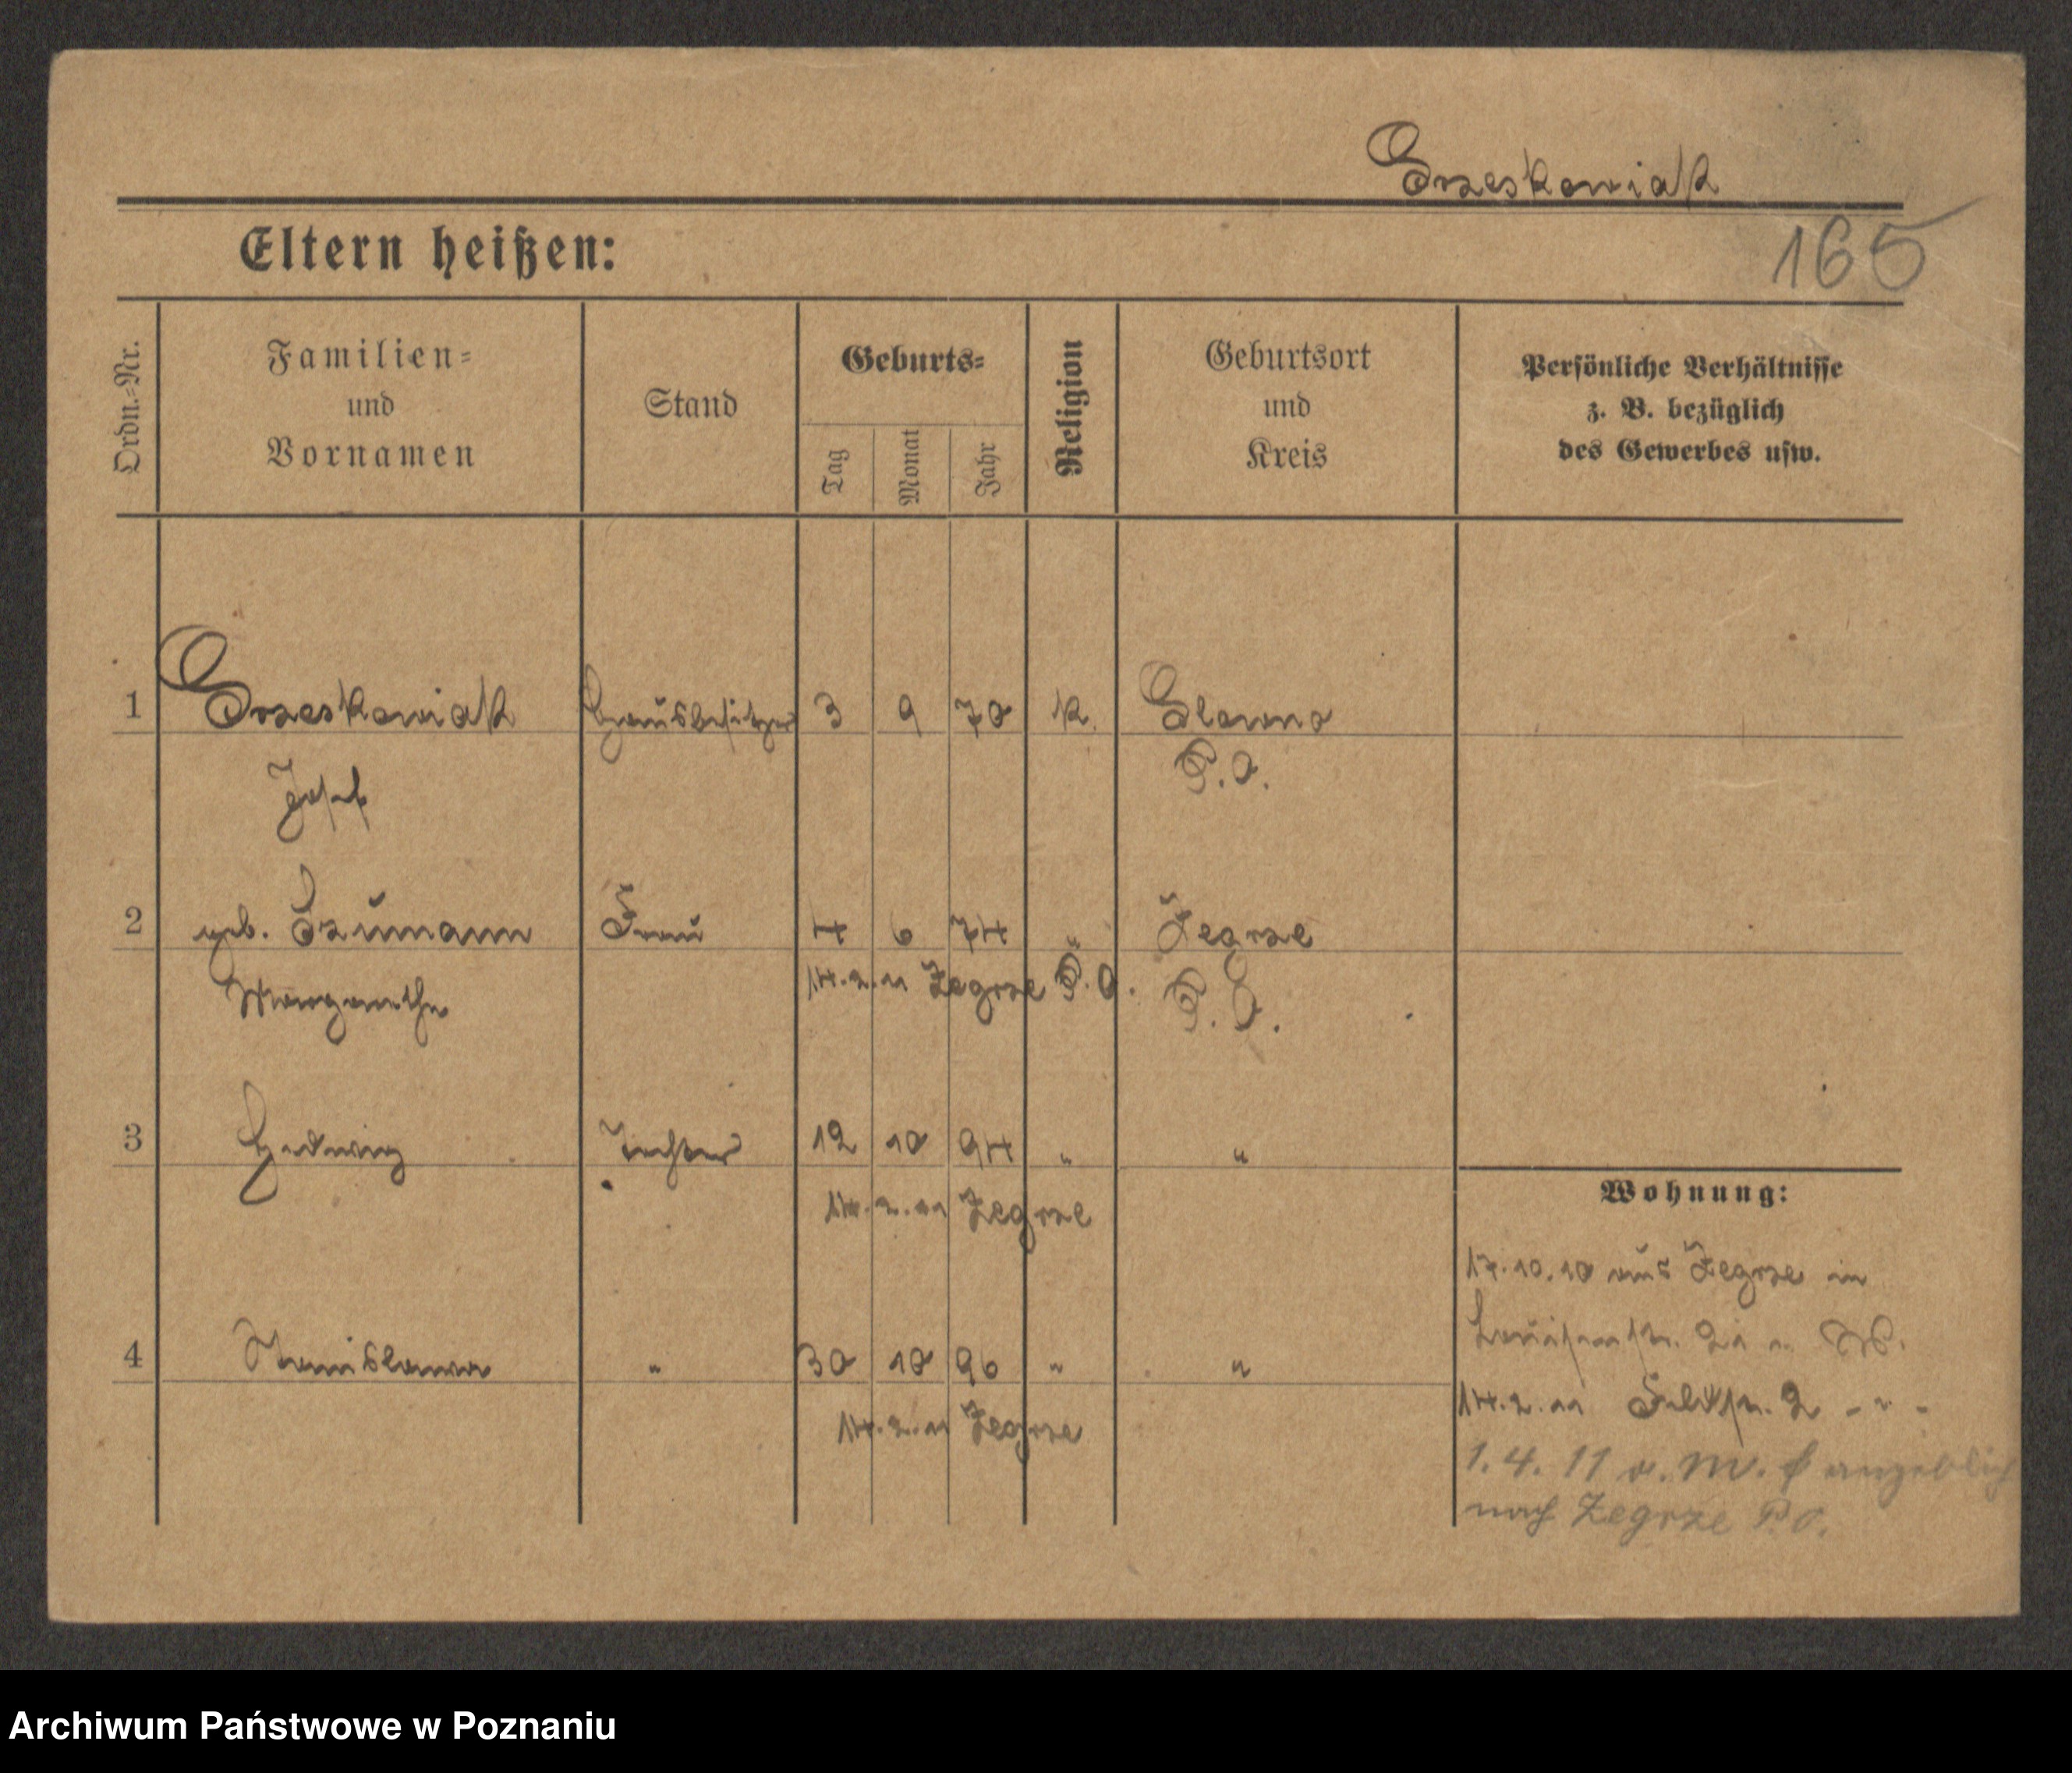 Grzeskowiak
Eltern heißen:
165
Ordn.-Nr.
Familien-
und
Vornamen
Stand
Geburts-
Tag
Monat
Jahr
Religion
Geburtsort
und
Kreis
Persönliche Verhältnisse
z. B. bezüglich
des Gewerbes usw.
1 Grzeskowiak Hausbesitzer 3 9 70 K. Glowno
Josef P.O.
2 geb. Szumann Frau 4 6 74 " Zegrze
Margarethe 14.2.11 Zegrze P.O. P.O.
3 Hedwig Tochter 12 10 94 " "
14.2.11 Zegrze
4 Stanislawa " 30 10 96 " "
14.2.11 Zegrze
Wohnung:
17.10.10 aus Zegrze in
Louisenstr. 21 W.
14.2.11 Feldstr. 2 - " -
1.4.11 o. M. angeblich
nach Zegrze P.O.
Archiwum Państwowe w Poznaniu